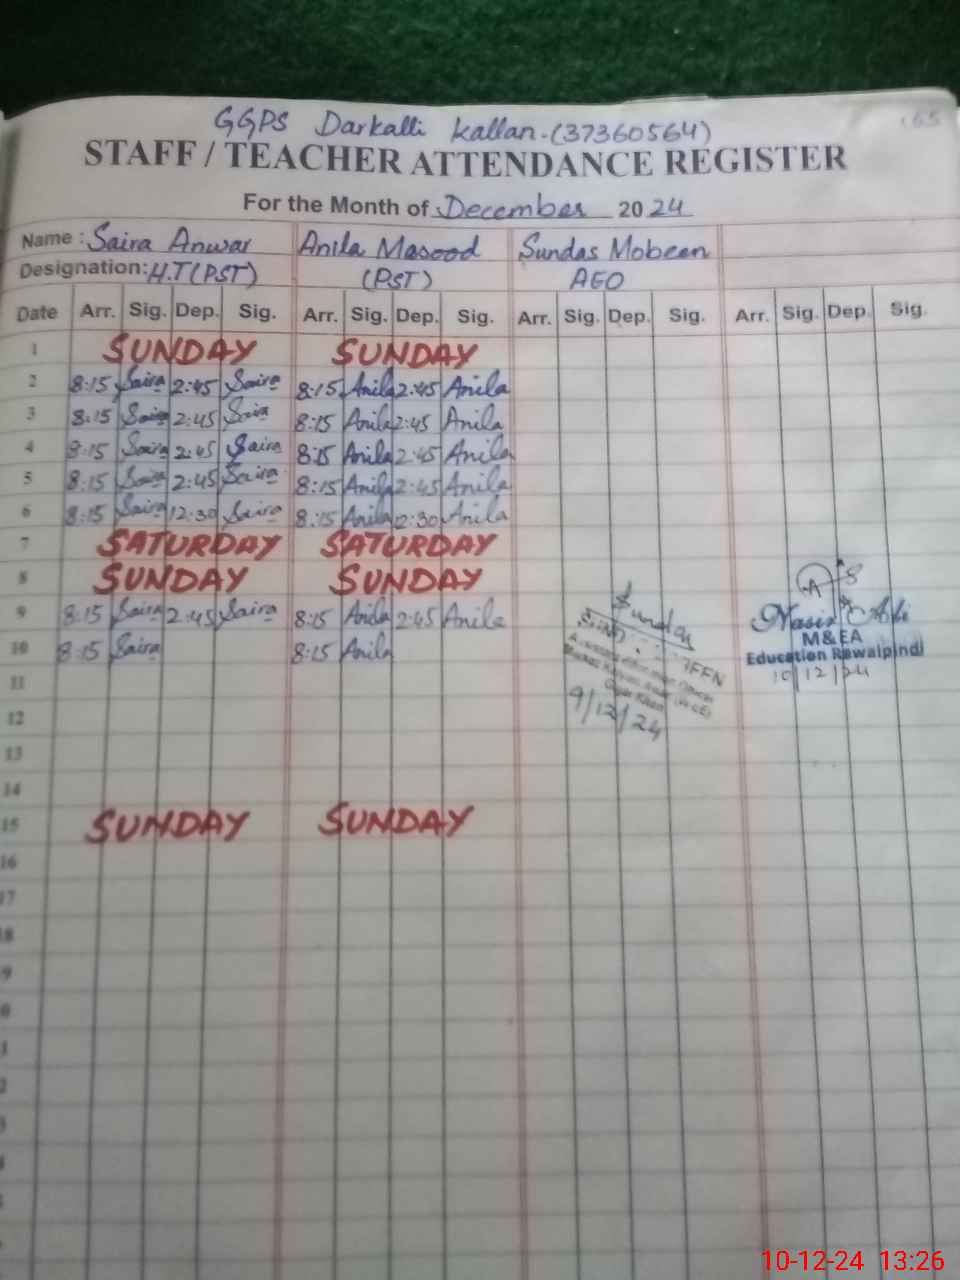 165
GGPS Darkalli Kallan.(37360564)
STAFF / TEACHER ATTENDANCE REGISTER
For the Month of December 2024
Name : Saira Anwar Anila Masood Sundas Mobeen
Designation: H.T(PST) (PST) AEO
Date Arr. Sig. Dep. Sig. Arr. Sig. Dep. Sig. Arr. Sig. Dep. Sig. Arr. Sig. Dep. Sig.
1 SUNDAY SUNDAY
2 8:15 Saira 2:45 Saira 8:15 Anila 2:45 Anila
3 8:15 Saira 2:45 Saira 8:15 Anila 2:45 Anila
4 8:15 Saira 2:45 Saira 8:15 Anila 2:45 Anila
5 8:15 Saira 2:45 Saira 8:15 Anila 2:45 Anila
6 8:15 Saira 12:30 Saira 8:15 Anila 12:30 Anila
7 SATURDAY SATURDAY
8 SUNDAY SUNDAY
9 8:15 Saira 2:45 Saira 8:15 Anila 2:45 Anila
10 8:15 Saira 8:15 Anila
Sundas
9/12/24
M&EA
Education Rawalpindi
10/12/24
11
12
13
14
15 SUNDAY SUNDAY
16
17
18
10-12-24 13:26